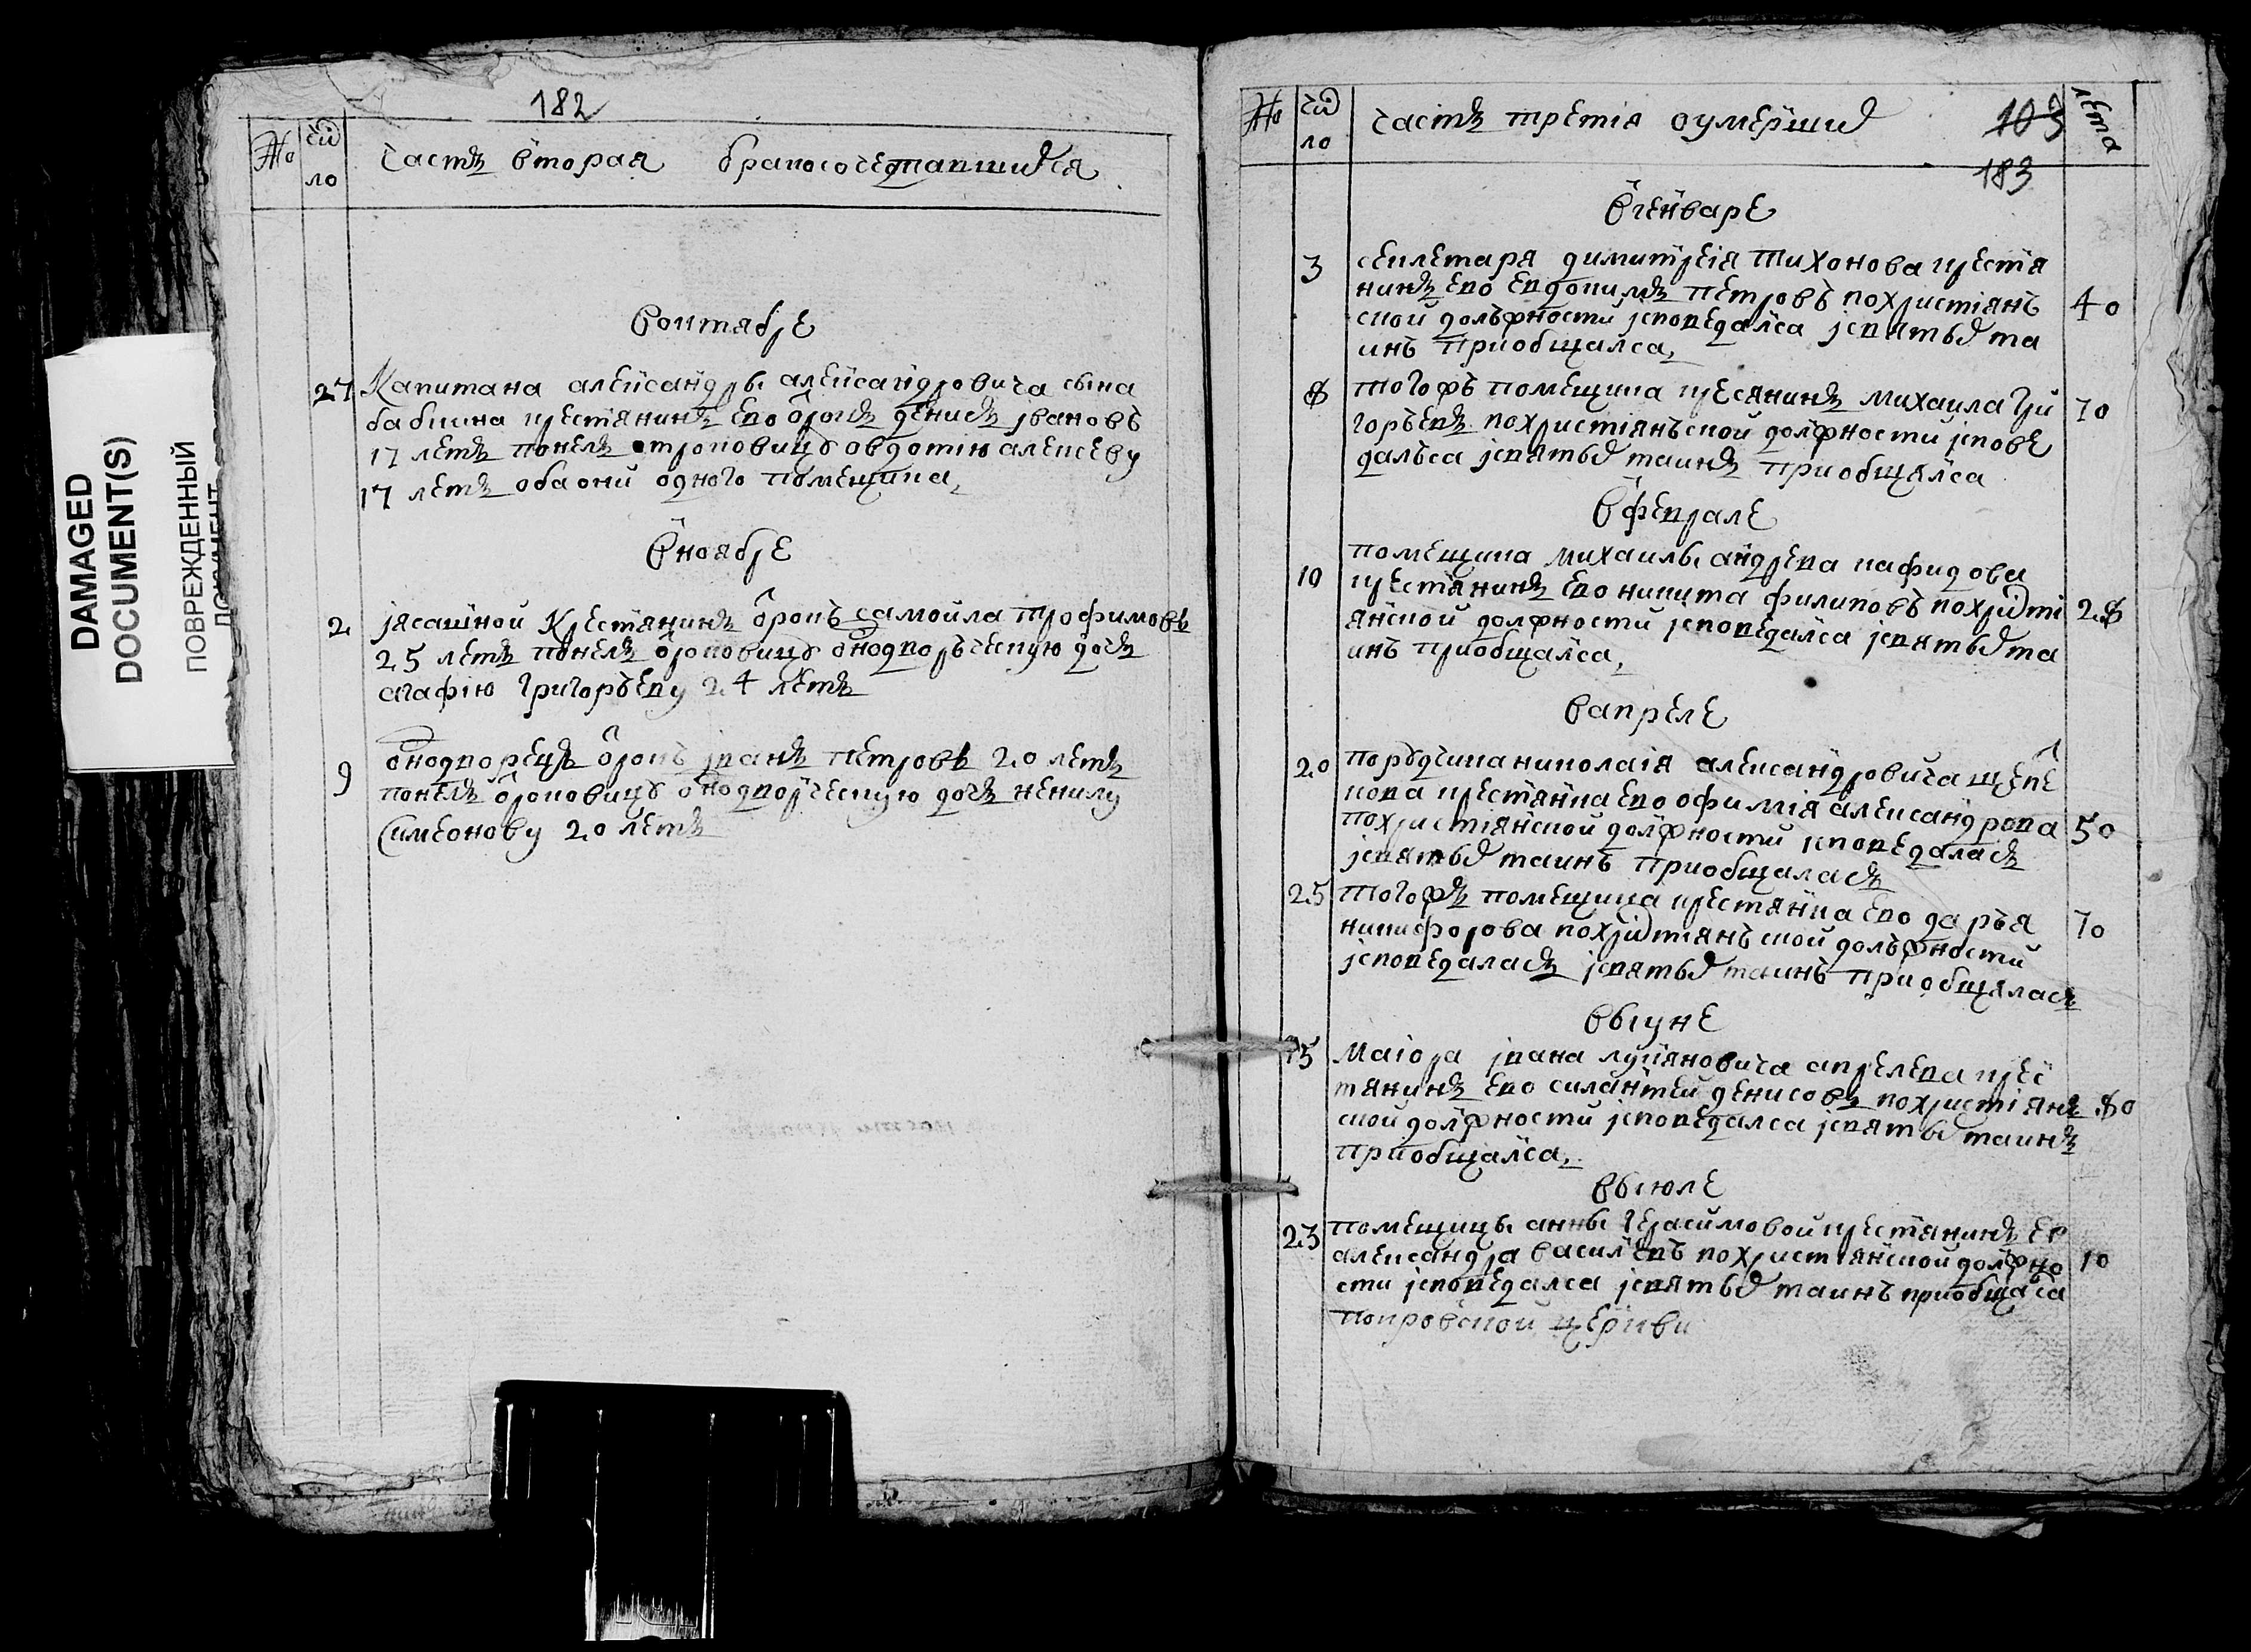 DAMAGED
DOCUMENT(S)
ПОВРЕЖДЕННЫЙ
182
№ число часть вторая бракосочетавшихся
Воктябре
27 Капитана алеѯандры алеѯандровича сына
бабкина крестянинъ ево отрокъ денисъ јвановъ
17 летъ понелъ отроковицу овдотию алексеву
17 летъ оба они одного помещика,
Вноябре
2 јясашной Крестянинъ отрокъ самойла трофимовъ
25 летъ понелъ отроковицу однодворъческую дочъ
агафию григоръеву 24 летъ
9 однодворецъ отрокъ јванъ петровъ 20 летъ
понелъ отроковицу однодворческую дочъ ненилу
Симеонову 20 летъ
№ число часть третiя о умершихъ 103 лета
183
Вгенваре
3 секлетаря димитрея тихонова крестя
нинъ ево евдокимъ петровъ похристиянъ
ской должности јсповедался јсвятыхъ та 40
инъ приобщался,
8 тогожъ помещика кресянинъ михаила гри
горъевъ похристиянъской должности јспове 70
далъса јсвятыхъ таинъ приобщался
Вфеврале
помещика михаилы андрева нафидова
10 крестянинъ ево никита филиповъ похристи 28
янской должности јсповедался јсвятыхъ та
инъ приобщался,
Вапреле
20 порутчика николаiя александровича щепе
кова крестянка ево офимия алексадрова 50
похристиянской должности јсповедаласъ
јсвятыхъ таинъ приобщаласъ
25 тогожъ помещика крестянка ево даръя
никифорова похристиянъской долъжности 70
јсповедаласъ јсвятыхъ таинъ приобщяласъ
Выуне
15 Маiора јвана лукяновича апрелева крес
тянинъ ево силантей денисовъ похристиянъ 80
ской должности јсповедался јсвятыхъ таинъ
приобщался,
Выюле
23 помещицы анны герасимовой крестянинъ ее
александра василевъ похристиянской должно 10
сти јсповедался јсвятыхъ таинъ приобщался
покровской церкви